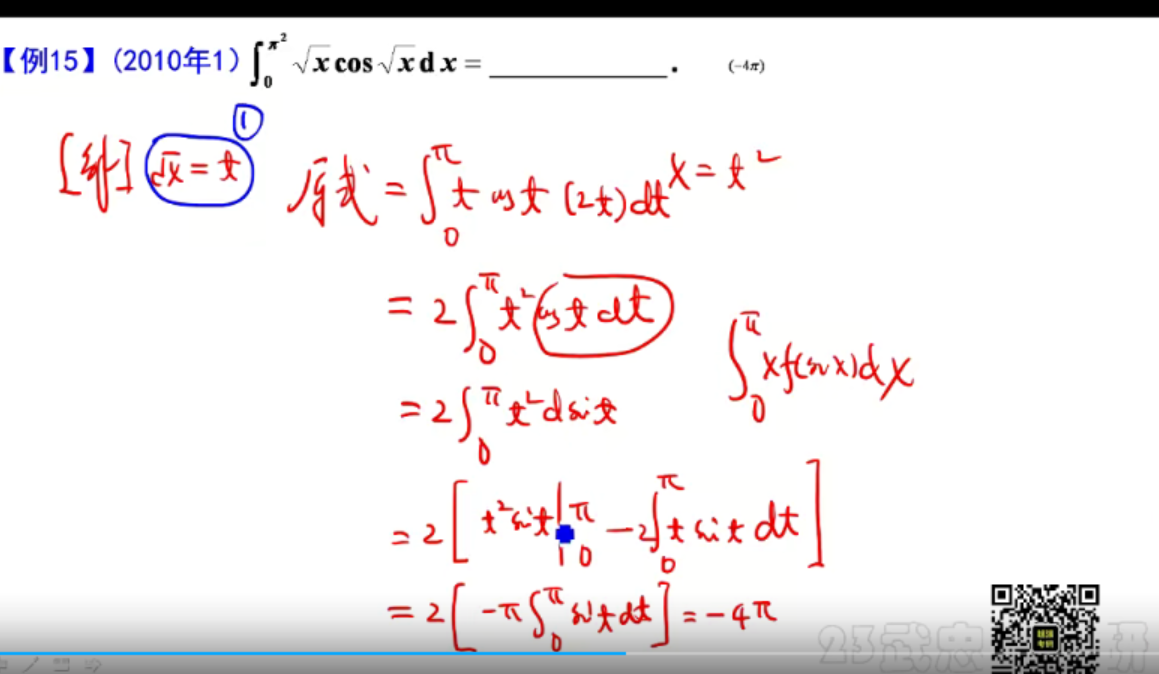 【例15】(2010年1) ∫₀^{π²} √x cos √x d x = ________. (-4π)
①
[解] √x = t 原式 = ∫₀^π t cos t (2t) dt x = t²
= 2∫₀^π t² cos t dt
∫₀^π x f(sin x) dx
= 2∫₀^π t² d sin t
= 2[ t² sin t |₀^π - 2∫₀^π t sin t dt ]
= 2[ -π ∫₀^π sin t dt ] = -4π
23武忠 研